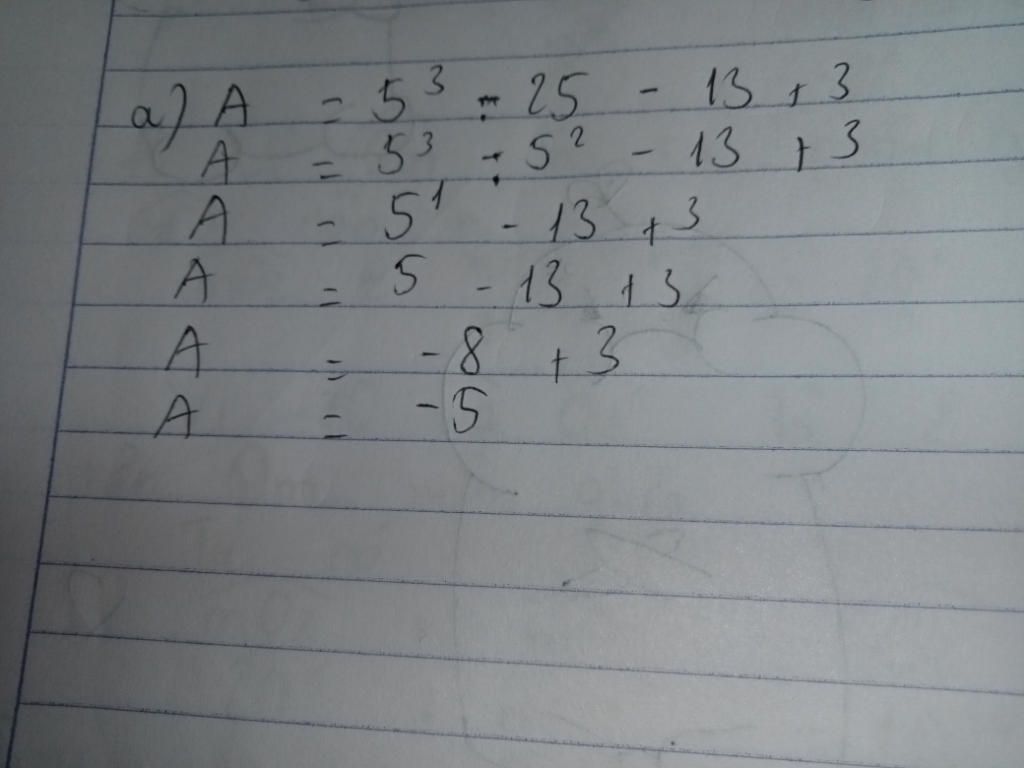 a) A = 5³ : 25 - 13 + 3
A = 5³ : 5² - 13 + 3
A = 5¹ - 13 + 3
A = 5 - 13 + 3
A = -8 + 3
A = -5